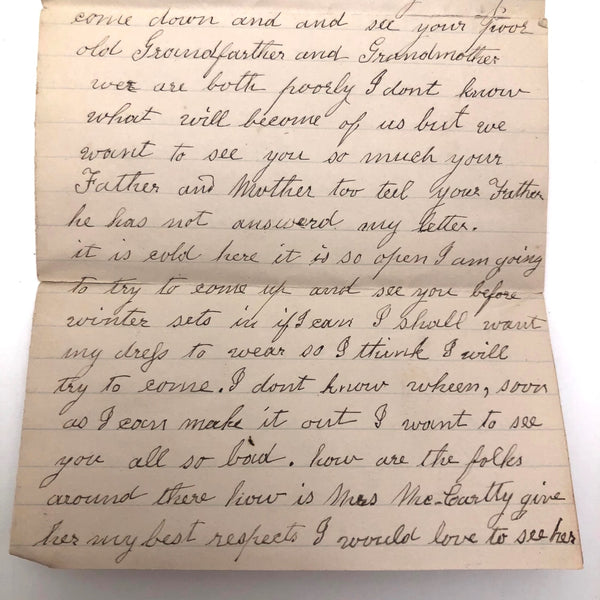 come down and and see your poor
old Grandfarther and Grandmother
wer are both poorly I dont know
what will become of us but we
want to see you so much your
Father and Mother too tell your Futher
he has not answerd my letter.
it is cold here it is so open I am going
to try to come up and see you before
winter sets in if I can I shall want
my dress to wear so I think I will
try to come. I dont know wheen, soon
as I can make it out I want to see
you all so bad. how are the folks
around there how is Mrs Mc-Cartty give
her my best respects I would love to see her